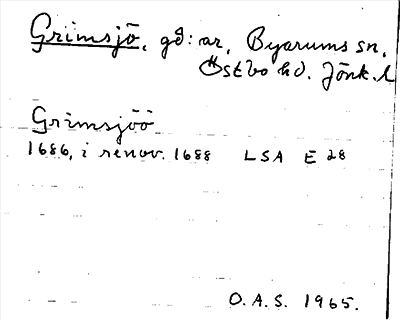 Grimsjö, gd:ar, Byarums sn,
Östbo hd. Jönk. l
Grimsjöö
1686, i renov. 1688 LSA E 28
O.A.S. 1965.